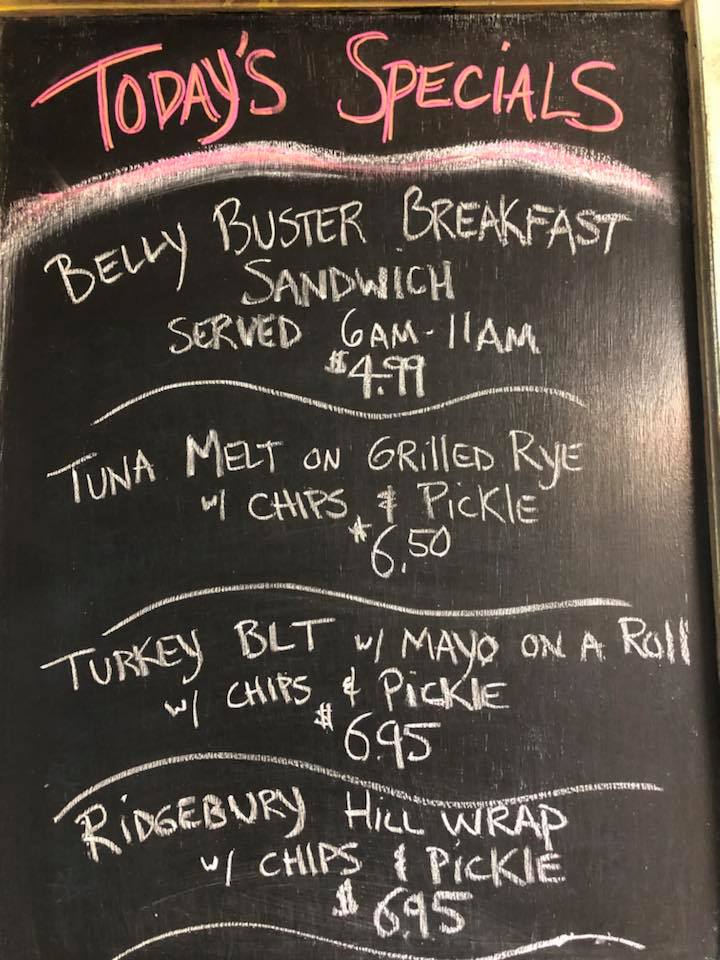 TODAY'S SPECIALS
BELLY BUSTER BREAKFAST
SANDWICH
SERVED 6AM-11AM
$4.99
TUNA MELT ON GRiLLED RyE
w/ CHIPS & PiCKLE
$6.50
TURKEY BLT w/ MAYO ON A Roll
w/ CHIPS & PiCKLE
$6.95
RiDGEBURY HiLL WRAP
w/ CHIPS & PiCKLE
$6.95